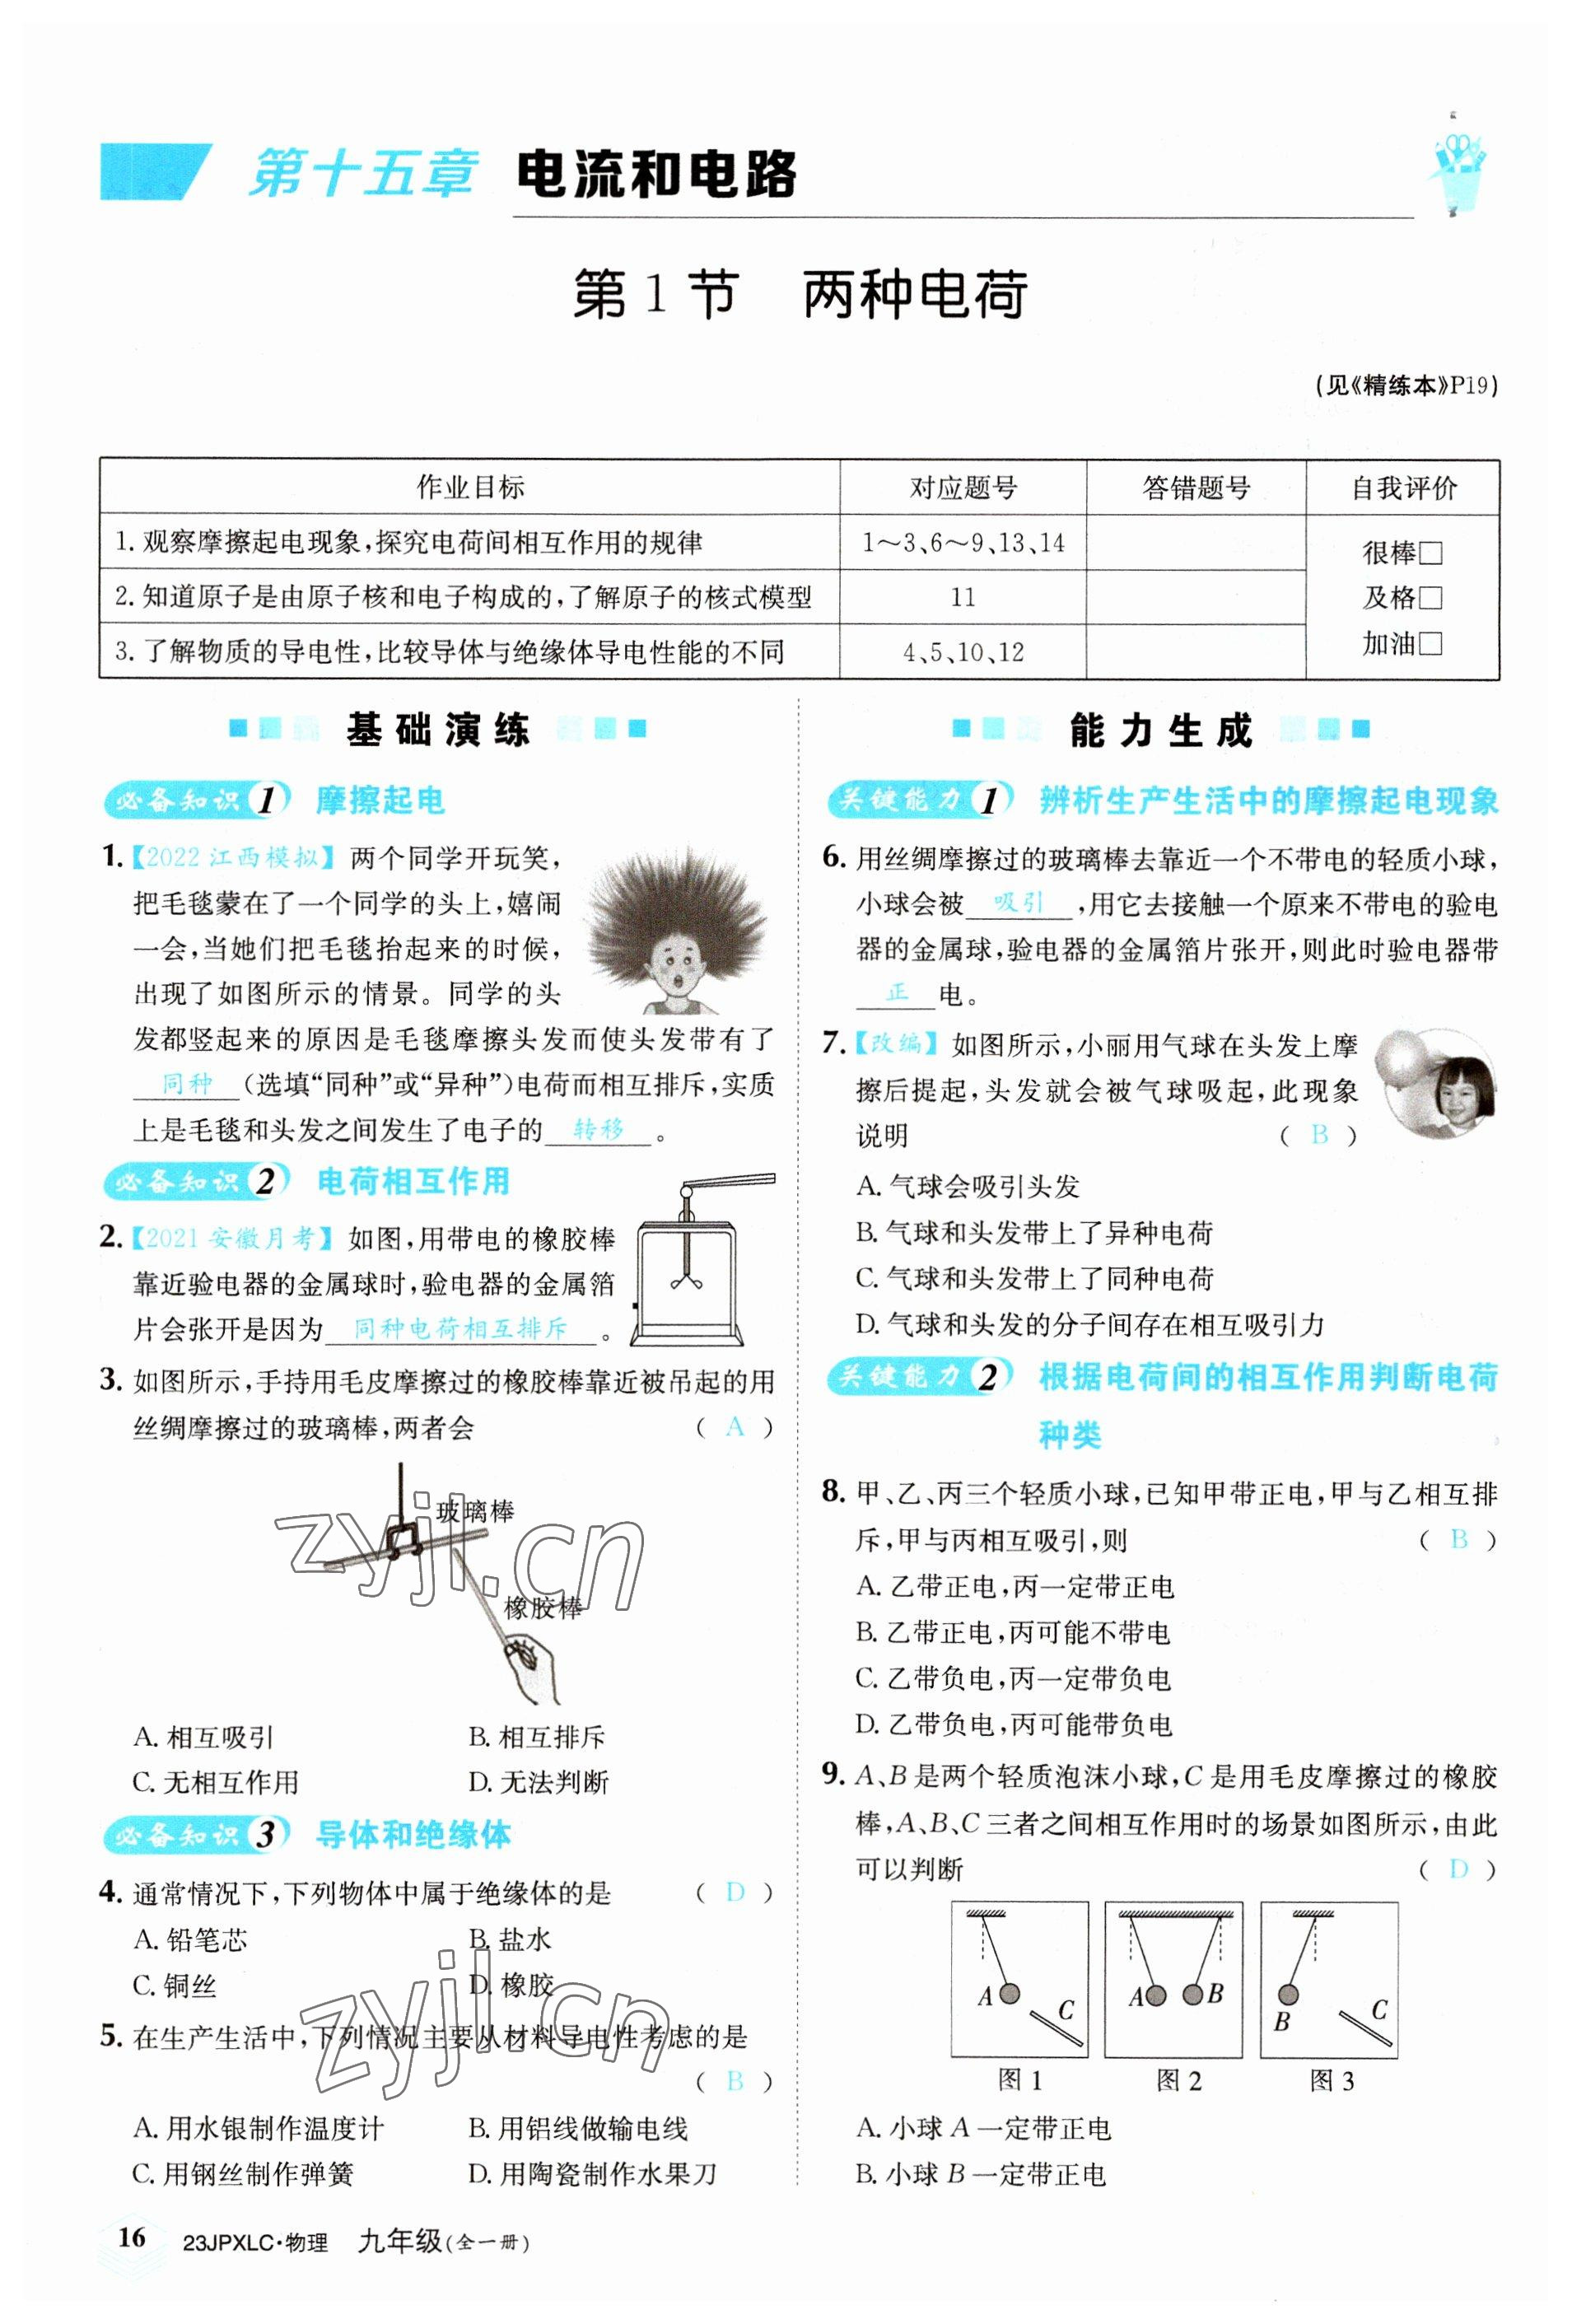 第十五章 电流和电路
第1节 两种电荷
(见《精练本》P19)
作业目标 对应题号 答错题号 自我评价
1.观察摩擦起电现象,探究电荷间相互作用的规律 1～3、6～9、13、14
很棒□
2.知道原子是由原子核和电子构成的,了解原子的核式模型 11
及格□
3.了解物质的导电性,比较导体与绝缘体导电性能的不同 4、5、10、12
加油□
基础演练
必备知识1 摩擦起电
1.【2022江西模拟】两个同学开玩笑,
把毛毯蒙在了一个同学的头上,嬉闹
一会,当她们把毛毯抬起来的时候,
出现了如图所示的情景。同学的头
发都竖起来的原因是毛毯摩擦头发而使头发带有了
同种(选填“同种”或“异种”)电荷而相互排斥,实质
上是毛毯和头发之间发生了电子的 转移 。
必备知识2 电荷相互作用
2.【2021安徽月考】如图,用带电的橡胶棒
靠近验电器的金属球时,验电器的金属箔
片会张开是因为 同种电荷相互排斥 。
3.如图所示,手持用毛皮摩擦过的橡胶棒靠近被吊起的用
丝绸摩擦过的玻璃棒,两者会 ( A )
玻璃棒
橡胶棒
zyjl.cn
A.相互吸引 B.相互排斥
C.无相互作用 D.无法判断
必备知识3 导体和绝缘体
4.通常情况下,下列物体中属于绝缘体的是 ( D )
A.铅笔芯 B.盐水
C.铜丝 D.橡胶
zyjl.cn
5.在生产生活中,下列情况主要从材料导电性考虑的是
( B )
A.用水银制作温度计 B.用铝线做输电线
C.用钢丝制作弹簧 D.用陶瓷制作水果刀
能力生成
关键能力1 辨析生产生活中的摩擦起电现象
6.用丝绸摩擦过的玻璃棒去靠近一个不带电的轻质小球,
小球会被 吸引 ,用它去接触一个原来不带电的验电
器的金属球,验电器的金属箔片张开,则此时验电器带
正 电。
7.【改编】如图所示,小丽用气球在头发上摩
擦后提起,头发就会被气球吸起,此现象
说明 ( B )
A.气球会吸引头发
B.气球和头发带上了异种电荷
C.气球和头发带上了同种电荷
D.气球和头发的分子间存在相互吸引力
关键能力2 根据电荷间的相互作用判断电荷
种类
8.甲、乙、丙三个轻质小球,已知甲带正电,甲与乙相互排
斥,甲与丙相互吸引,则 ( B )
A.乙带正电,丙一定带正电
B.乙带正电,丙可能不带电
C.乙带负电,丙一定带负电
D.乙带负电,丙可能带负电
9.A、B是两个轻质泡沫小球,C是用毛皮摩擦过的橡胶
棒,A、B、C三者之间相互作用时的场景如图所示,由此
可以判断 ( D )
A C
A B
B C
图1 图2 图3
A.小球A一定带正电
B.小球B一定带正电
16 23JPXLC·物理 九年级(全一册)